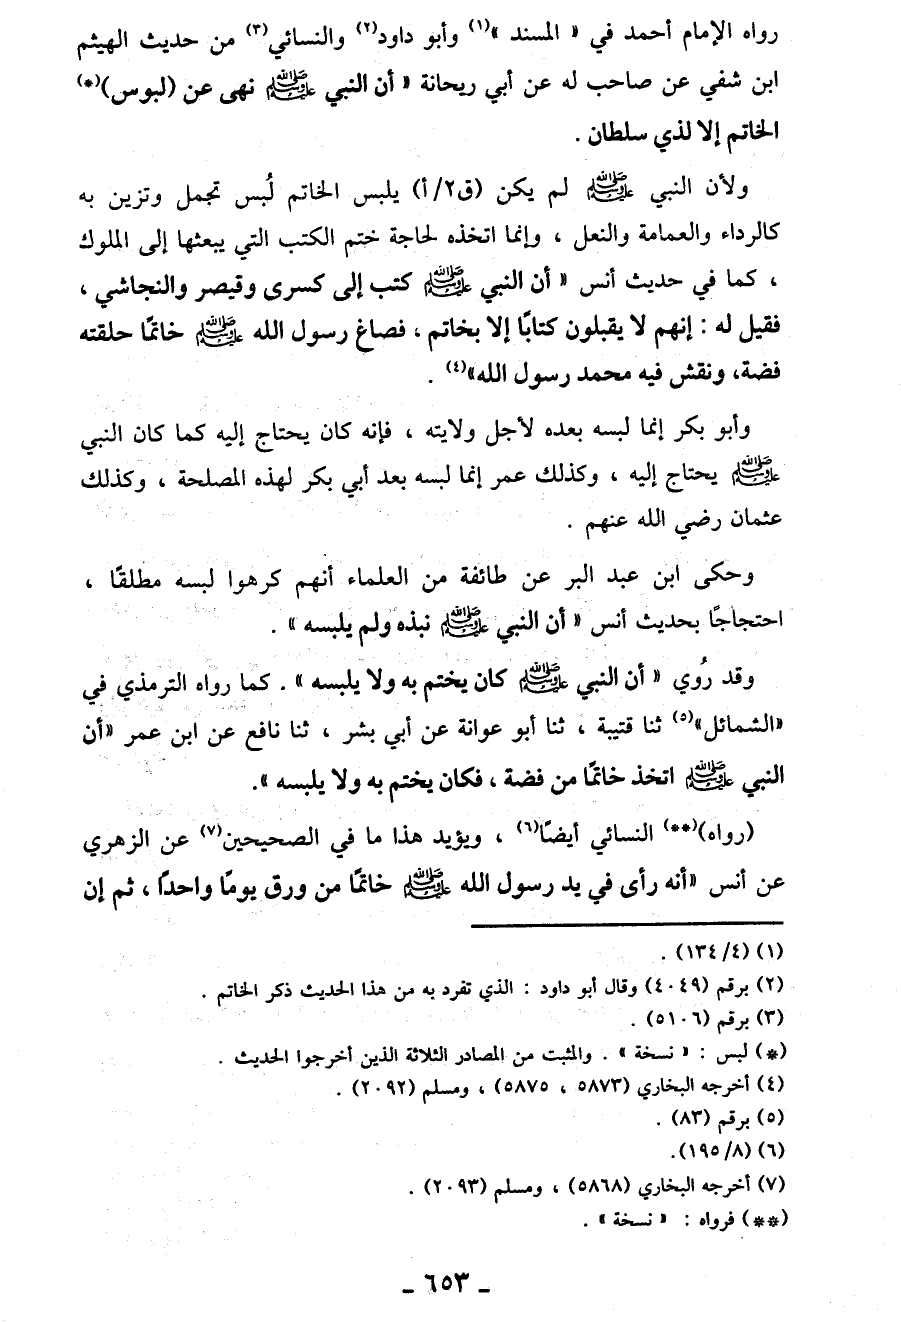 رواه الإمام أحمد في « المسند »(١) وأبو داود(٢) والنسائي(٣) من حديث الهيثم
ابن شفي عن صاحب له عن أبي ريحانة « أن النبي ﷺ نهى عن (لبوس)(*)
الخاتم إلا لذي سلطان .
ولأن النبي ﷺ لم يكن (ق٢/أ) يلبس الخاتم لُبس تجمل وتزين به
كالرداء والعمامة والنعل ، وإنما اتخذه لحاجة ختم الكتب التي يبعثها إلى الملوك
، كما في حديث أنس « أن النبي ﷺ كتب إلى كسرى وقيصر والنجاشي ،
فقيل له : إنهم لا يقبلون كتابًا إلا بخاتم ، فصاغ رسول الله ﷺ خاتمًا حلقته
فضة، ونقش فيه محمد رسول الله»(٤) .
وأبو بكر إنما لبسه بعده لأجل ولايته ، فإنه كان يحتاج إليه كما كان النبي
ﷺ يحتاج إليه ، وكذلك عمر إنما لبسه بعد أبي بكر لهذه المصلحة ، وكذلك
عثمان رضي الله عنهم .
وحكى ابن عبد البر عن طائفة من العلماء أنهم كرهوا لبسه مطلقًا ،
احتجاجًا بحديث أنس « أن النبي ﷺ نبذه ولم يلبسه » .
وقد رُوي « أن النبي ﷺ كان يختم به ولا يلبسه » . كما رواه الترمذي في
«الشمائل»(٥) ثنا قتيبة ، ثنا أبو عوانة عن أبي بشر ، ثنا نافع عن ابن عمر «أن
النبي ﷺ اتخذ خاتمًا من فضة ، فكان يختم به ولا يلبسه ».
(رواه)(**) النسائي أيضًا(٦) ، ويؤيد هذا ما في الصحيحين(٧) عن الزهري
عن أنس «أنه رأى في يد رسول الله ﷺ خاتمًا من ورق يومًا واحدًا ، ثم إن
(١) (٤/ ١٣٤) .
(٢) برقم (٤٠٤٩) وقال أبو داود : الذي تفرد به من هذا الحديث ذكر الخاتم .
(٣) برقم (٥١٠٦) .
(*) لبس : « نسخة » . والمثبت من المصادر الثلاثة الذين أخرجوا الحديث .
(٤) أخرجه البخاري (٥٨٧٣ ، ٥٨٧٥) ، ومسلم (٢٠٩٢) .
(٥) برقم (٨٣) .
(٦) (٨/ ١٩٥).
(٧) أخرجه البخاري (٥٨٦٨) ، ومسلم (٢٠٩٣) .
(**) فرواه : « نسخة » .
ـ ٦٥٣ ـ